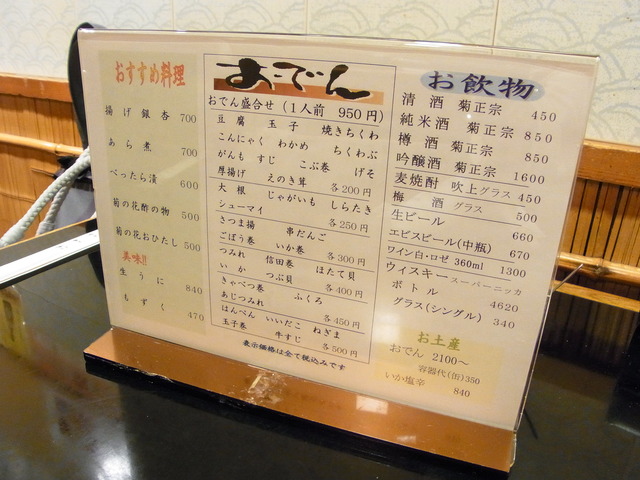 おすすめ料理
揚げ銀杏 700
あら煮 700
べったら漬 600
菊の花酢の物 500
菊の花おひたし 500
美味!!
生うに 840
もずく 470
おでん
おでん盛合せ(1人前 950円)
豆腐 玉子 焼きちくわ
こんにゃく わかめ ちくわぶ
がんも すじ こぶ巻 げそ
厚揚げ えのき茸 各200円
大根 じゃがいも しらたき
シューマイ 各250円
さつま揚 串だんご
ごぼう巻 いか巻 各300円
つみれ 信田巻 ほたて貝
いか つぶ貝 各400円
きゃべつ巻 ふくろ
あじつみれ 各450円
はんぺん いいだこ ねぎま
玉子巻 牛すじ 各500円
表示価格は全て税込みです
お飲物
清酒 菊正宗 450
純米酒 菊正宗 850
樽酒 菊正宗 850
吟醸酒 菊正宗 1600
麦焼酎 吹上グラス 450
梅酒 グラス 500
生ビール 660
エビスビール(中瓶) 670
ワイン白・ロゼ 360ml 1300
ウィスキー スーパーニッカ
ボトル 4620
グラス(シングル) 340
お土産
おでん 2100〜
容器代(缶)350
いか塩辛 840